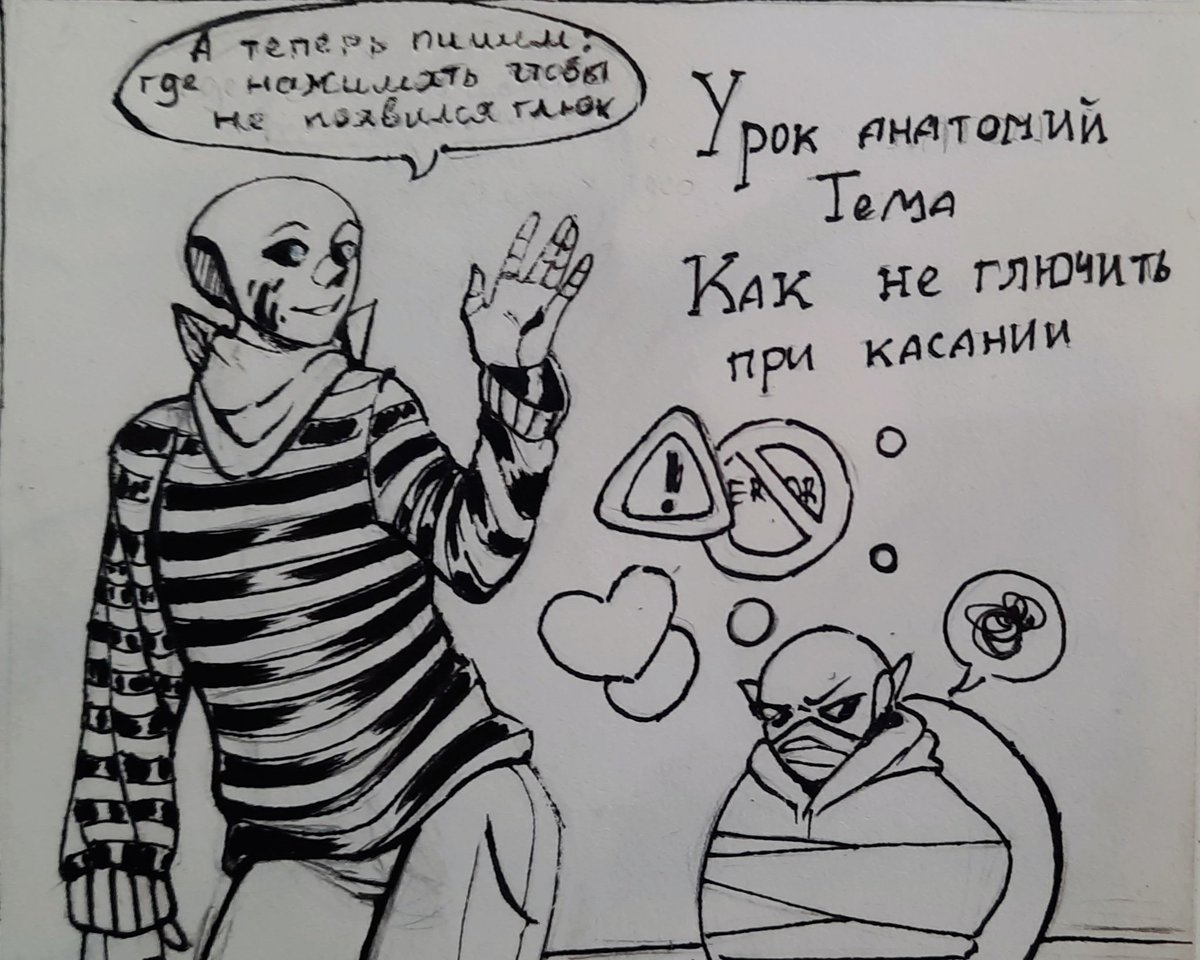 А теперь пишем:
где нажимать чтобы
не появился глюк
Урок анатомий
Тема
Как не глючить
при касании
!
ERROR